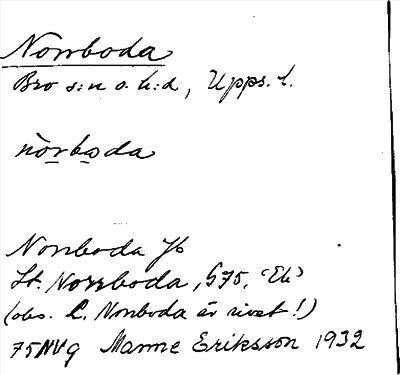 Norrboda
Bro s:n o. h:d, Upps. l.
nòrboda
Norrboda
St. Norrboda, G75, "Ek"
(obs. L. Norrboda är rivet!)
75NVg Manne Eriksson 1932